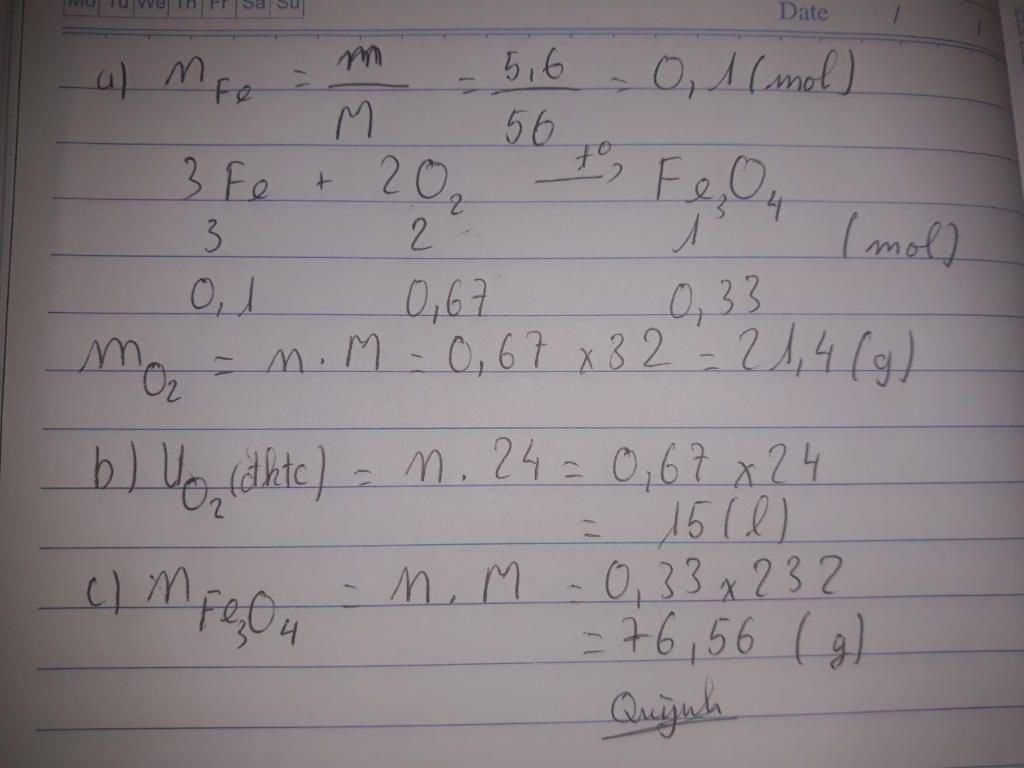 Mo Tu We Th Fr Sa Su
Date / /
a) n Fe = m/M = 5,6/56 = 0,1 (mol)
3Fe + 2O2 t° → Fe3O4
3 2 1 (mol)
0,1 0,67 0,33
mO2 = n . M = 0,67 x 32 = 21,4 (g)
b) VO2 (đktc) = n . 24 = 0,67 x 24
= 15 (l)
c) m Fe3O4 = n . M = 0,33 x 232
= 76,56 (g)
Quỳnh